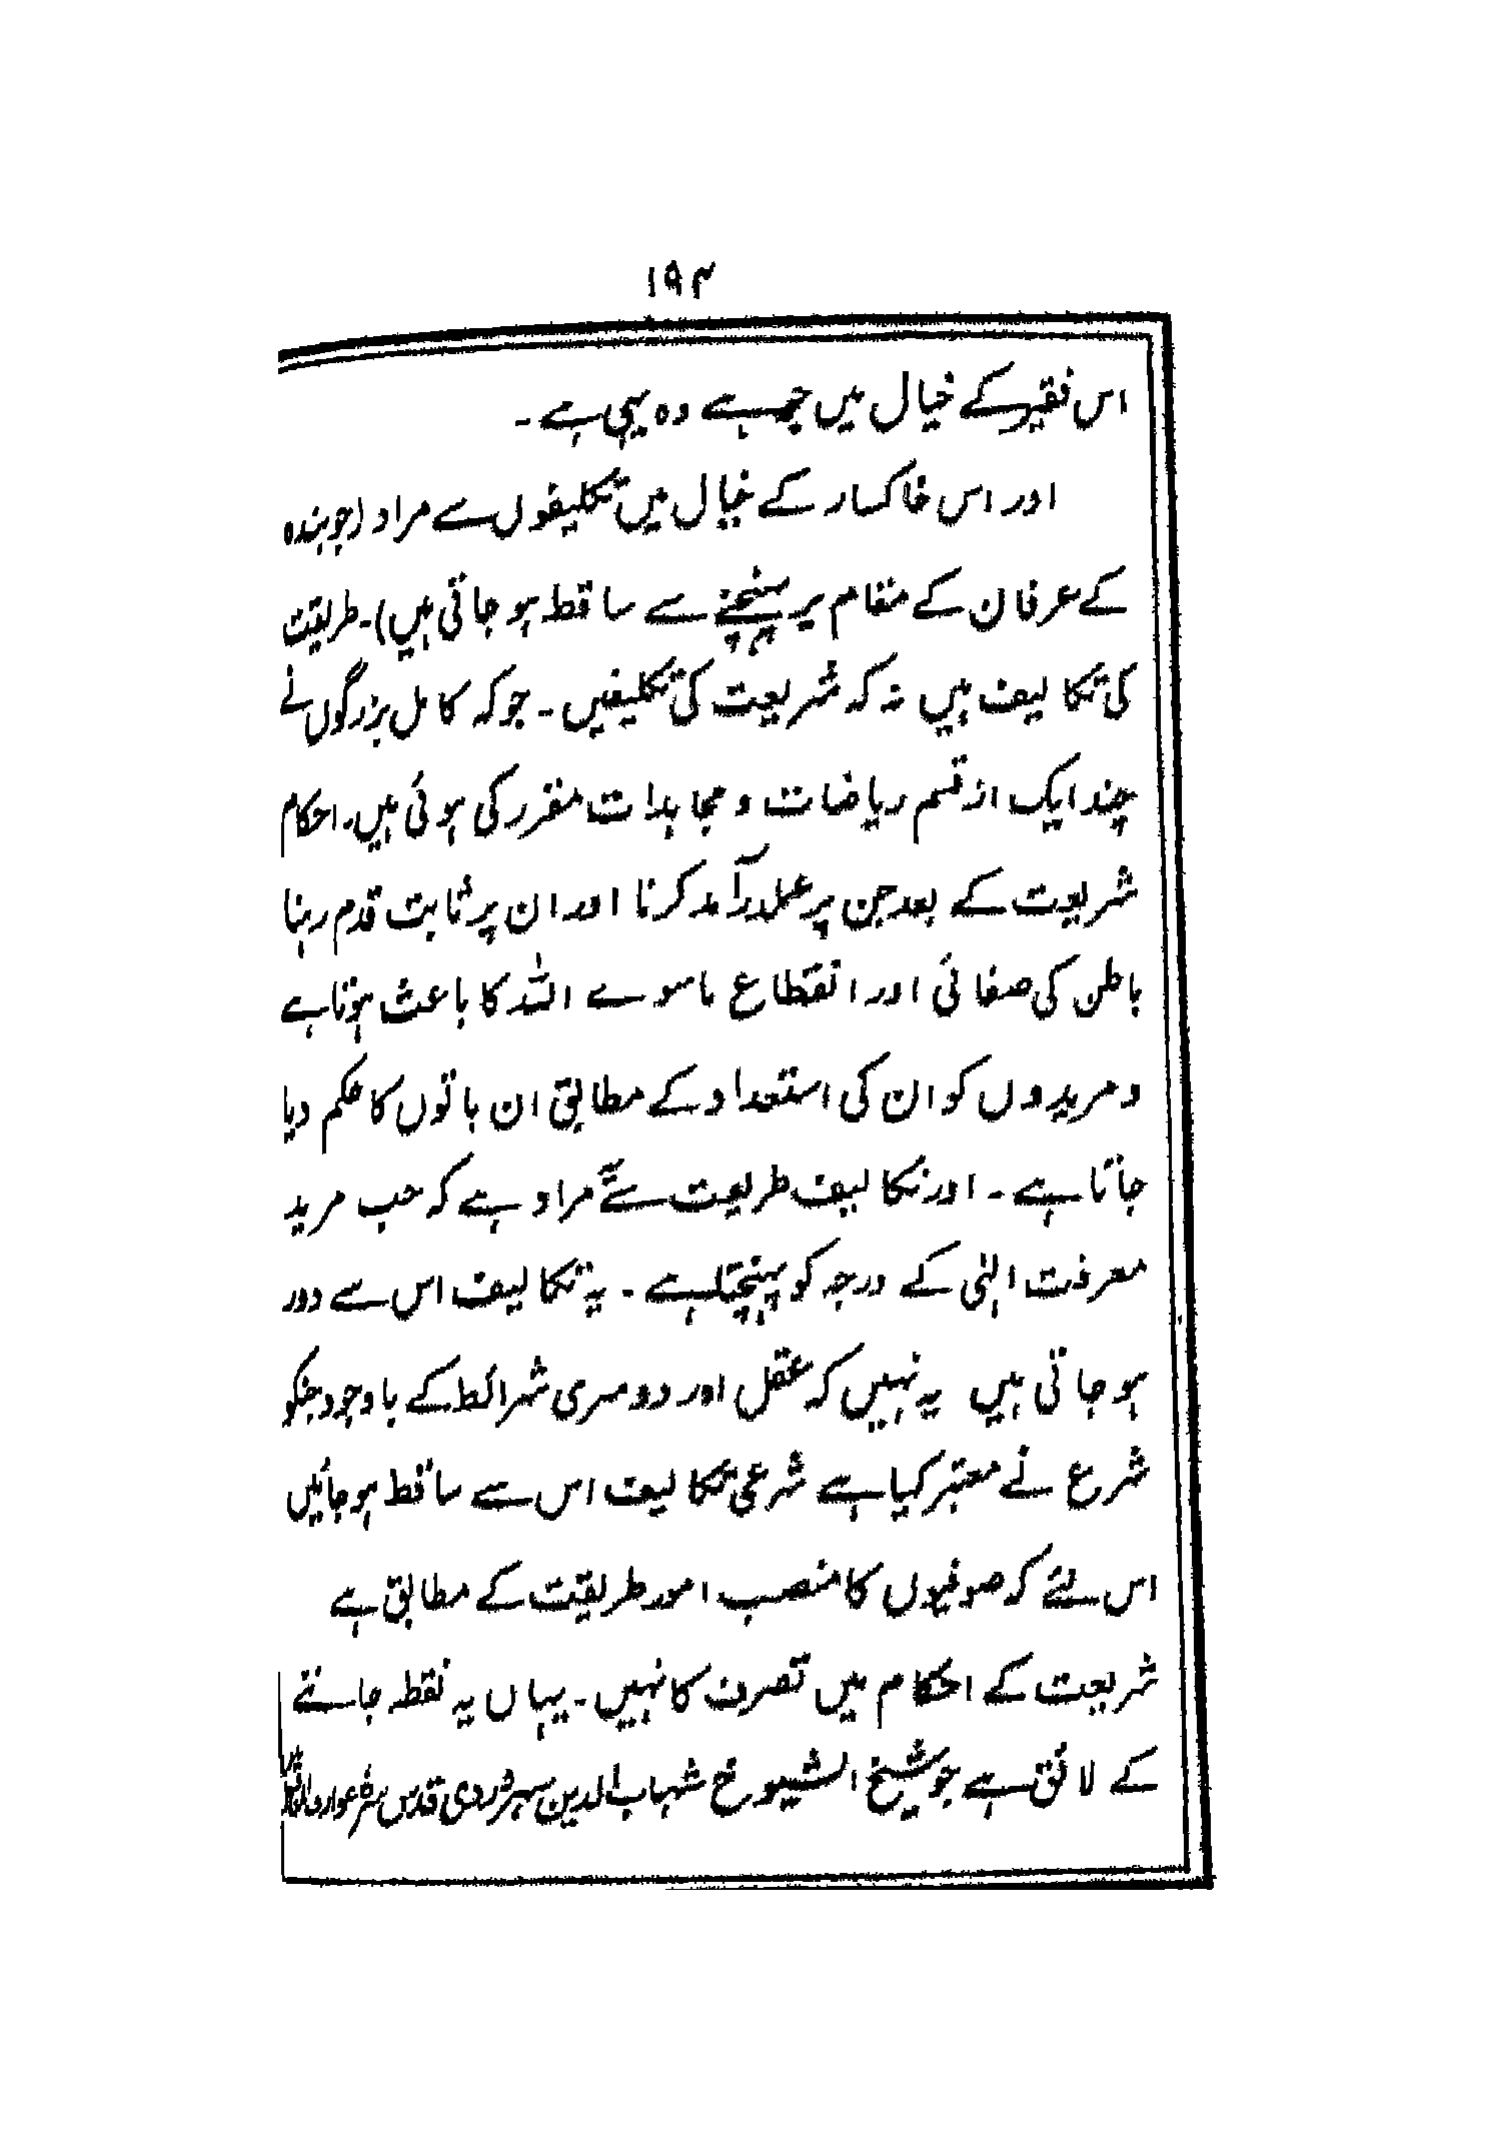 ۱۹۴
اس فقیر کے خیال میں جو ہے وہ یہی ہے ۔
اور اس خاکسار کے خیال میں تکلیفوں سے مراد (جو بندہ
کے عرفان کے مقام پر پہنچنے سے ساقط ہو جاتی ہیں)۔ طریقت
کی تکالیف ہیں نہ کہ شریعت کی تکلیفیں ۔ جو کہ کامل بزرگوں نے
چند ایک از قسم ریاضات و مجاہدات مقرر کی ہوئی ہیں۔ احکام
شریعت کے بعد جن پر عملدرآمد کرنا اور ان پر ثابت قدم رہنا
باطن کی صفائی اور انقطاع ماسوے اللہ کا باعث ہوتا ہے
و مریدوں کو ان کی استعداد کے مطابق ان باتوں کا حکم دیا
جاتا ہے ۔ اور تکالیف طریعت سے مراد ہے کہ جب مرید
معرفت الہٰی کے درجہ کو پہنچتا ہے ۔ یہ تکالیف اس سے دور
ہو جاتی ہیں یہ نہیں کہ عقل اور دوسری شرائط کے باوجود جنکو
شرع نے معتبر کیا ہے شرعی تکالیف اس سے ساقط ہو جائیں
اس لئے کہ صوفیوں کا منصب امور طریقت کے مطابق ہے
شریعت کے احکام میں تصرف کا نہیں ۔ یہاں یہ نقطہ جاننے
کے لائق ہے جو شیخ الشیوخ شہاب الدین سہروردی قدس سرہٗ عوارف